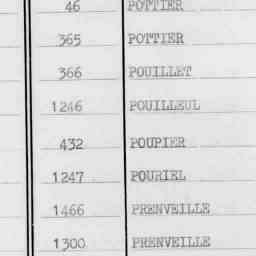 46 POTTIER
365 POTTIER
366 POUILLET
1246 POUILLEUL
432 POUPIER
1247 POURIEL
1466 PRENVEILLE
1300 PRENVEILLE